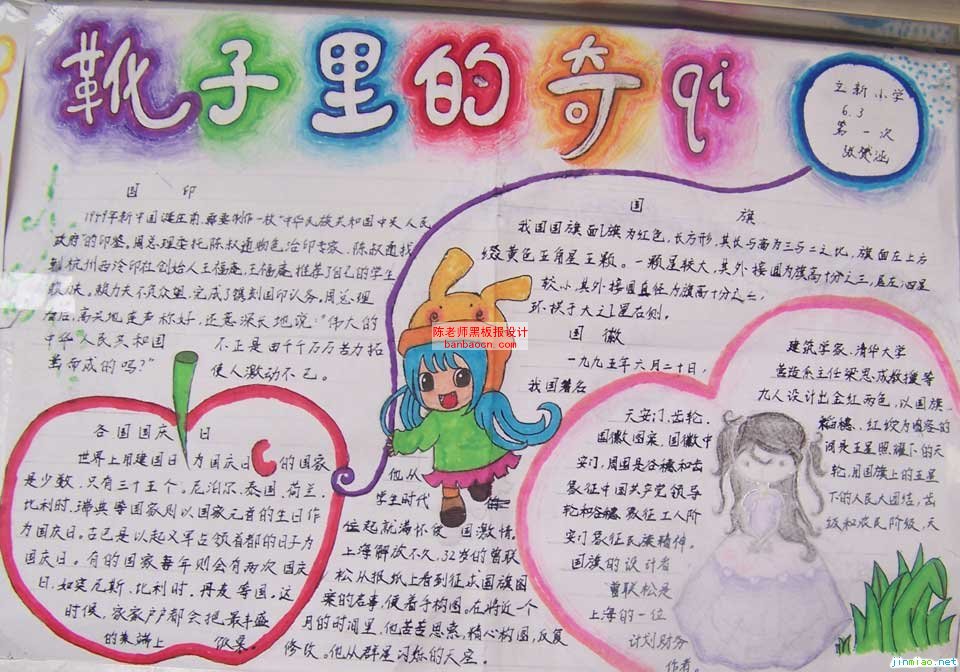 靴子里的奇qi
立新小学
6.3
第一次
国印
1949年新中国诞生前,需要制作一枚"中华民族共和国中央人民
政府"的印鉴,周总理委托陈叔通物色治印专家,陈叔通找
到杭州西泠印社创始人王福庵,王福庵推荐了自己的学生
不负众望,完成了镌刻国印任务。周总理
连声称好,还意深长地说:"伟大的
中华人民共和国 不正是由千千万万苦力拓
而成的吗?" 使人激动不已。
国旗
我国国旗面旗为红色,长方形,其长与高为三与二之比,旗面左上方
缀黄色五角星五颗。一颗星较大,其外接圆为旗高十分之三,居左;四星
较小,其外接圆直径为旗高十分之一,
环拱于大之星右侧。
国徽
一九九五年六月二十日,
我国著名
建筑学家、清华大学
营造系主任梁思成教授等
九人设计出金红两色,以国旗、
稻穗、红绶为内容的
词是五星照耀下的天
天安门、齿轮.
国徽图案,国徽中
安门,周围是谷穗和齿
轮,用国旗上的五星
象征中国共产党领导
下的人民大团结,齿
轮和谷穗象征工人阶
级和农民阶级,天
安门象征民族精神.
国旗的设计者
曾联松是
上海的一位
计划财务
作者。
各国国庆日
世界上用建国日为国庆日的国家
是少数,只有三十五个。尼泊尔、泰国、荷兰、
比利时、瑞典等国家则以国家元首的生日作
为国庆日。古巴是以起义军占领首都的日子为
国庆日。有的国家每年则会有两次国庆
日,如突尼斯、比利时、丹麦等国。这
时候,家家户户都会把最丰盛
的集端上
他从
学生时代
位起就满怀爱国激情。
上海解放不久,32岁的曾联
松从报纸上看到征求国旗图
案的启事,便着手构图。在将近一个
月的时间里,他苦苦思索,精心构图,反复
修改。他从群星闪烁的天空、
陈老师黑板报设计
banbaocn.com
jinmiao.net